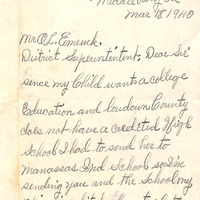 Middleburg Va
Mar 18 1940
Mr. O.L. Emerick,
District Superintentent, Dear Sir
sence my Child wants a college
Education and loudown County
does not have a credeted High
School I had to send her to
Manassas Ind School so I'm
sending you and the School my